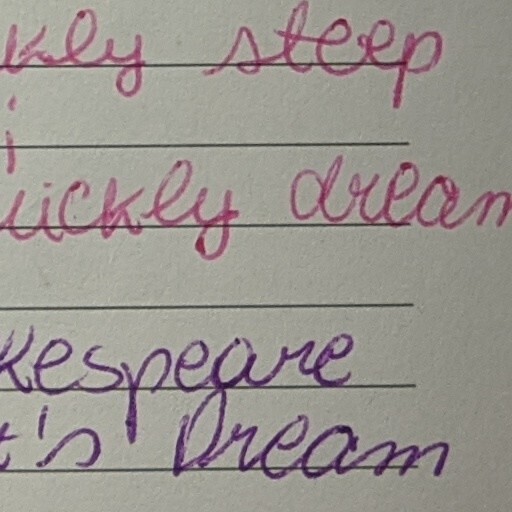 kly steep
i
uickly dream
kespeare
t's Dream